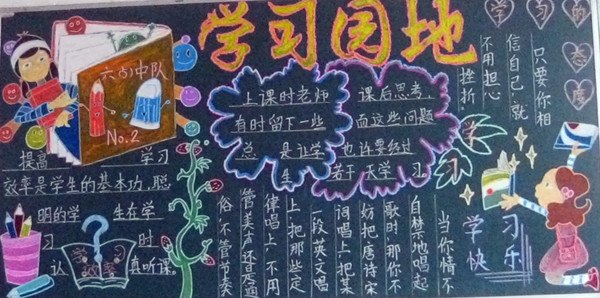 学习园地
学习的态度
只要你相
信自己,就
不用担心
挫折
中队
No.2
提高 学习
效率是学生的基本功,聪
明的学 生在学
习 时
认 真听课。
上课时老师
有时留下一些
总 是让学
生
课后思考,
而这些问题
也许要经过
若干天学习
当你情不
自禁地唱起
歌时那你不
妨把唐诗宋
词唱上把某
一段英文唱
上把那些定
律唱上不用
管美声还是通
俗不管节奏
学习
快乐